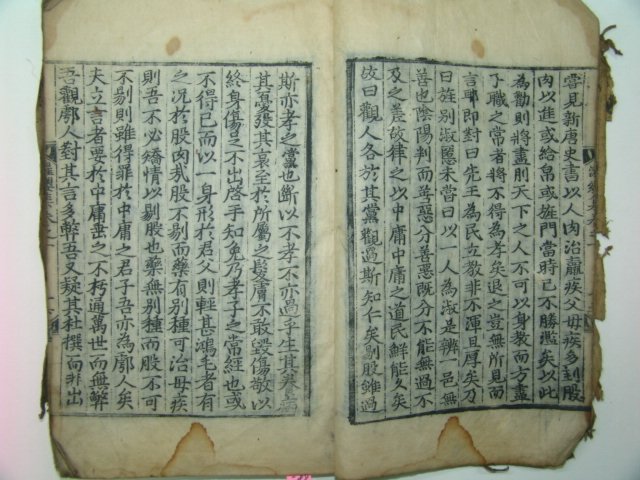 嘗見新唐史書以人肉治羸疾父母疾多刲股
肉以進或給帛或旌門當時已不勝濫矣以此
為勸則將盡則天下之人不可以身教而方盡
子職之常者將不得為孝矣退之豈無所見而
言耶即對曰先王為民立教非不渾且厚矣乃
曰旌別淑慝未嘗曰以一人為淑是辨一邑無
善也陰陽判而善惡分善惡旣分不能無過不
及之差故律之以中庸中庸之道民鮮能久矣
故曰觀人各於其黨觀過斯知仁矣剔股雖過
斯亦孝之黨也斷以不孝不亦過乎生其
其哀至於所屬之髮膚不敢毁傷敬以
終身傷之不出啓手知免乃孝子之常經也或
不得已而以一身形於君父則輕甚鴻毛者有
之況於股肉哉股不剔而藥有別種可治母疾
則吾不必矯情以剔股也藥無別種而股不可
不剔則雖得罪於中庸之君子吾亦為鄠人矣
夫立言者要於中庸垂之不朽通萬世而無弊
吾觀鄠人對其言多弊吾又疑其杜撰而非出